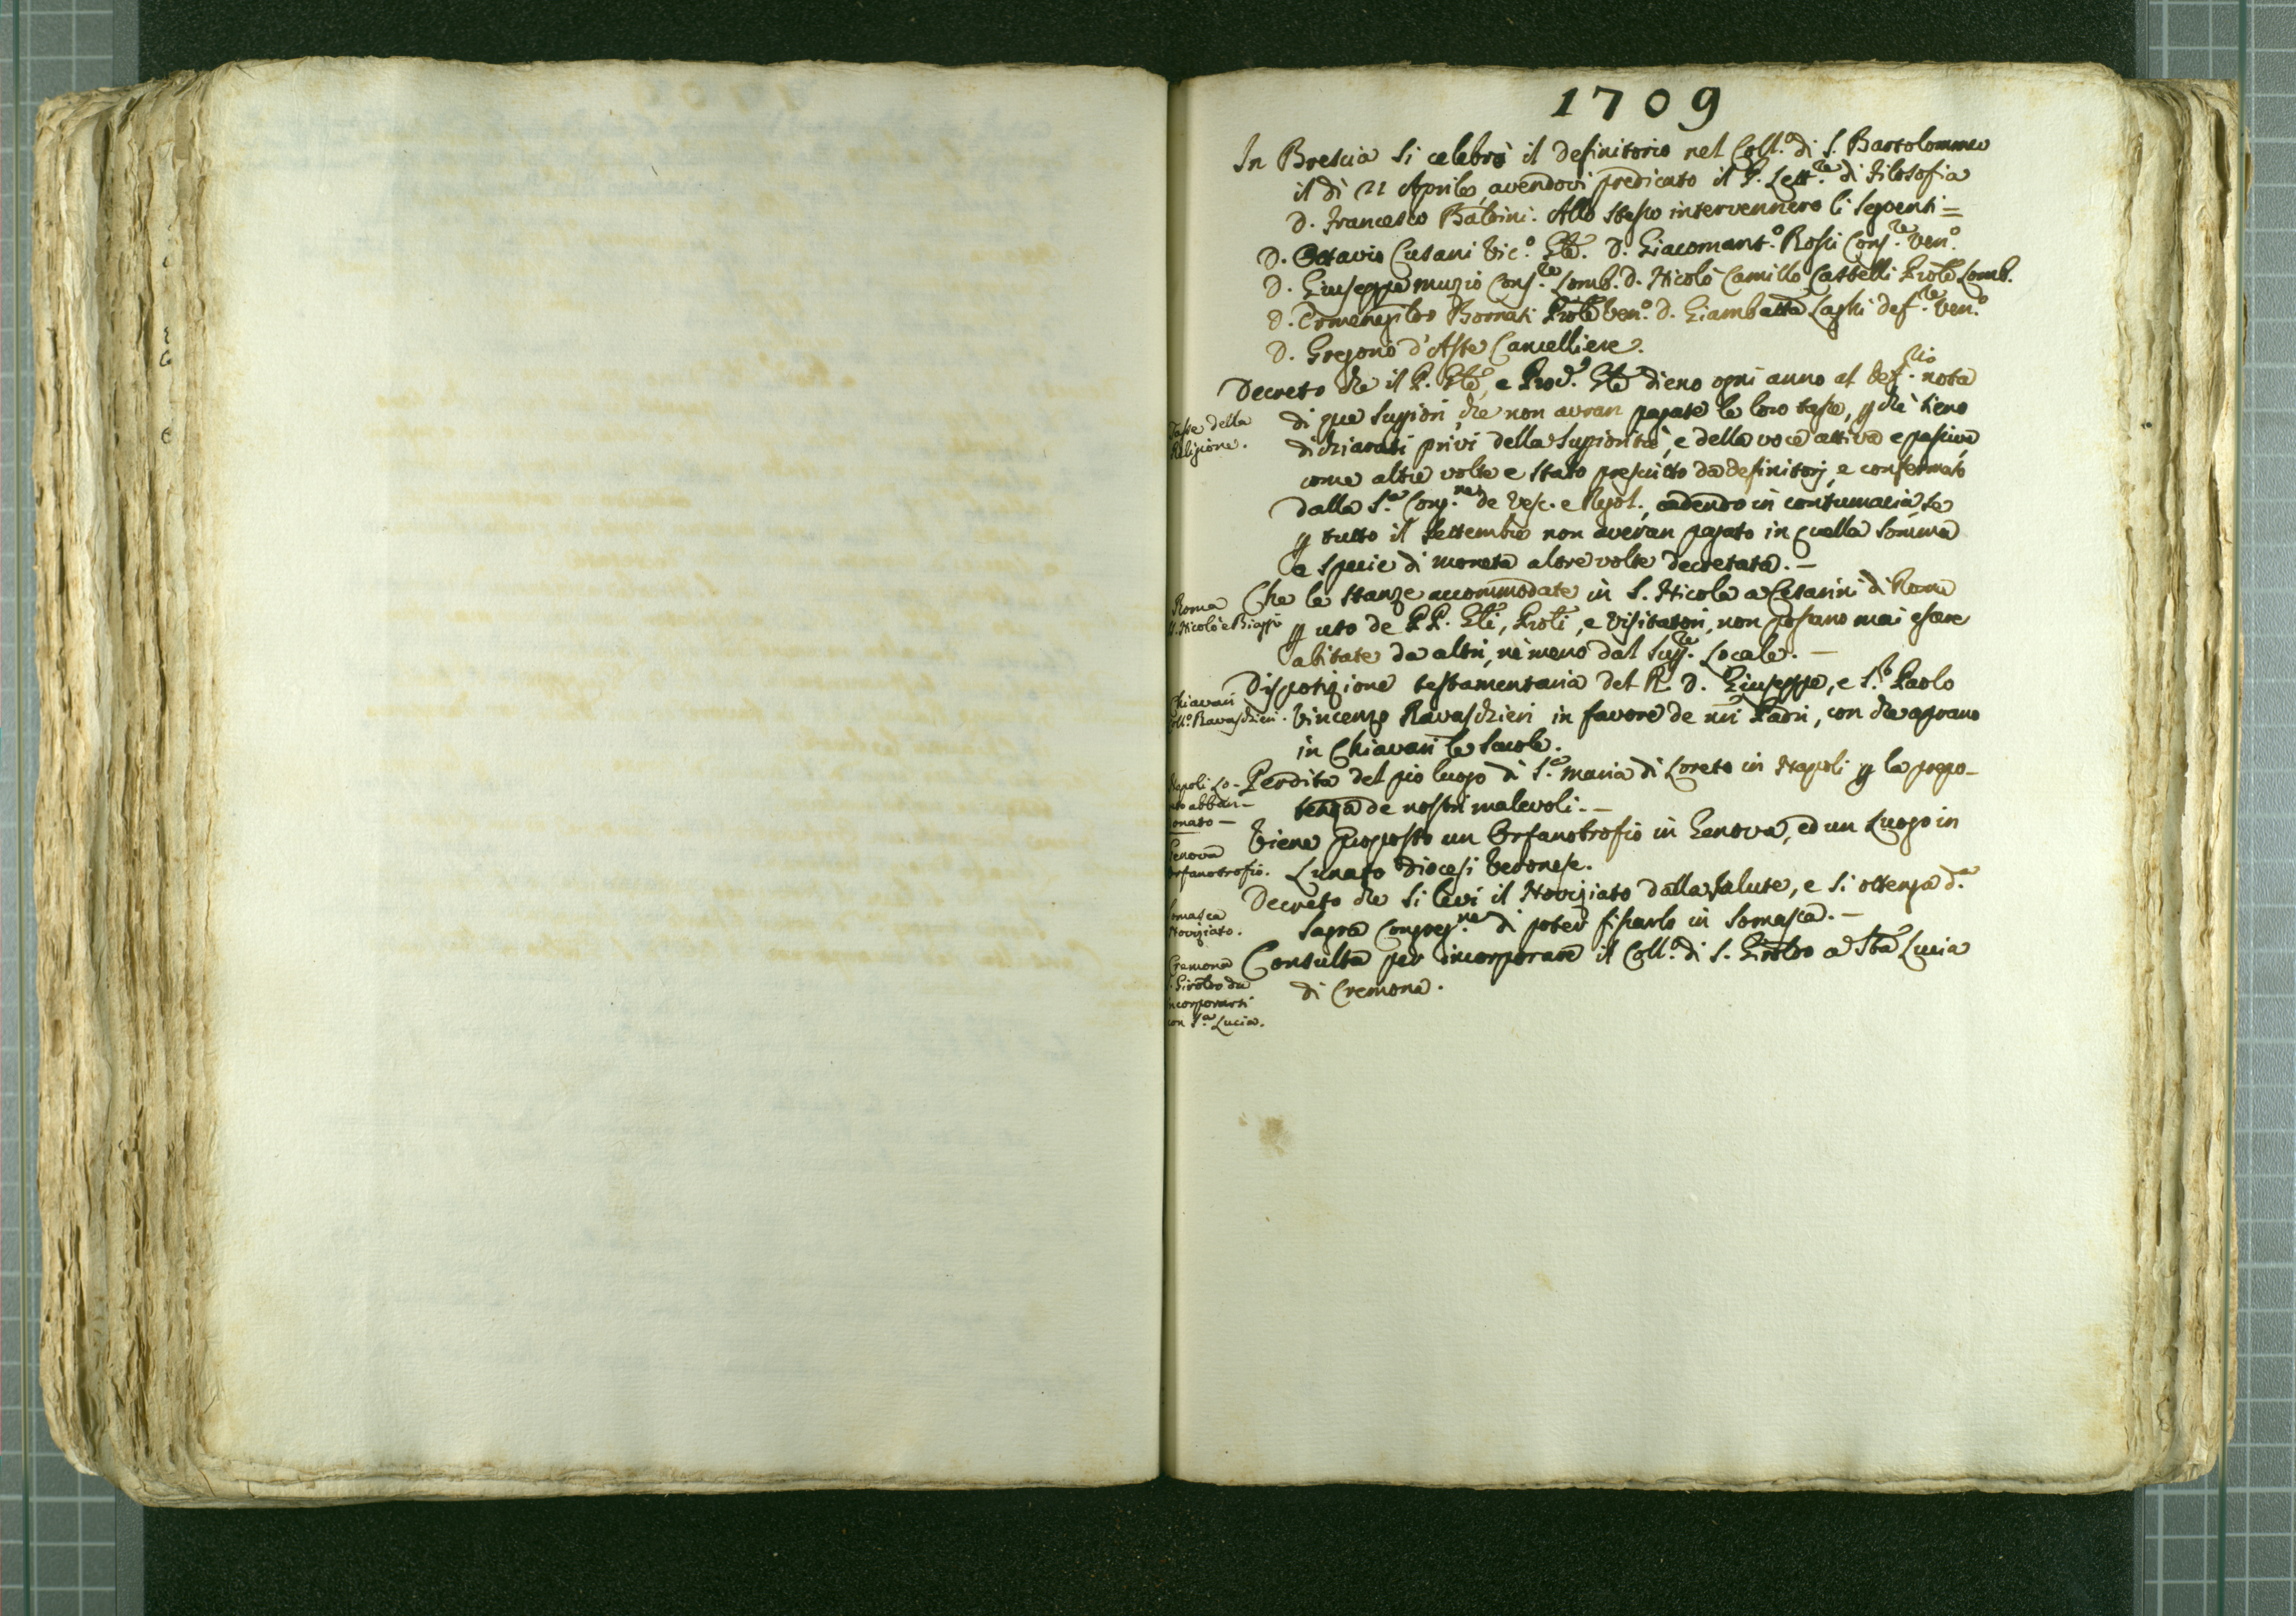 1709
In Brescia si celebrò il definitorio nel Coll.o di S. Bartolommeo
il dì 21 Aprile, avendovi predicato il P. Lett.re di Filosofia
D. Francesco Baldini. Allo stesso intervennero li seguenti =
D. Octavio Cusani Vic.o Gle. D. Giacomant.o Rossi Cons.re Ven.o
D. Giuseppe Muzio Cons.re Lomb. D. Nicolò Camillo Castelli Prole Lomb.
D. Ermenegildo Bornati Prole Ven.o D. Giambatta Laghi def.re Ven.o
D. Gregorio d'Aste Cancelliere.
Decreto che il P. Gle, e Prod. Gle dieno ogni anno al Def.rio nota
Tasse della
Religione.
di que Supiori, che non avran pagate le loro tasse, p che sieno
dichiarati privi della Supiorità, e della voce attiva e passiva,
come altre volte e stato prescritto da definitorj, e confermato
dalla S.a Cong.ne de Vesc. e Regol., cadendo in contumacia se
p tutto il settembre non averan pagato in quella somma
e specie di moneta altre volte decretata. —
Roma
S. Nicolò e Biagio
Che le stanze accommodate in S. Nicola a Cesarini di Roma
p uso de PP. Gli, Proli, e Visitatori, non possano mai essere
abitate da altri, nè meno dal Sup.re Locale. —
Chiavari
Coll.o Ravaschieri.
Disposizione testamentaria del R. D. Giuseppe, e S.r Paolo
Vincenzo Ravaschieri in favore de nri Padri, con che aprano
in Chiavari le Scuole.
Napoli Lo-
reto abban-
donato —
Perdita del pio luogo di S.a Maria di Loreto in Napoli p la prepo-
tenza de nostri malevoli. —
Genova
Orfanotrofio.
Viene proposto un Orfanotrofio in Genova, ed un Luogo in
Lunato Diocesi Veronese.
Somasca
Noviziato.
Decreto che si levi il Noviziato dalla Salute, e si ottenga d.a
Sagra Congreg.ne di poter fissarlo in Somasca. —
Cremona
S. Girolmo da
incorporarsi
con S.a Lucia.
Consulta per incorporare il Coll.o di S. Girolmo a Sta Lucia
di Cremona.